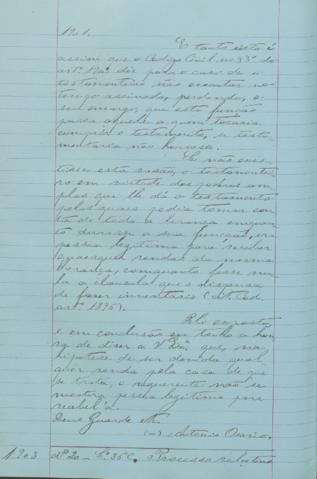 1901.
E tanto isto é
assim que o Codigo Civil no § 3º do
artº 1903 diz para o caso de o
testamenteiro não executar no
tempo assinado, perderá, o
seu encargo, que esta função
passa aquelle a quem tocaria
cumprir o testamento, se testa-
mentaria não houvesse.
E não exis-
tisse esta razão, o testamentei-
ro em virtude dos poderes am-
plos que lhe dá o testamento
pelos quaes podia tomar con-
ta de toda a herança emquan-
to durasse a sua funcção, era
pessoa legitima para receber
quaesquer rendas da mesma
herança, comquanto fosse nul-
la a clausula que o dispensa
de fazer inventario (cit. Cod.
artº 1896).
Pelo exposto
e em conclusão eu tenho a hon-
ra de dizer a V. Exª que, na
hipotese de ser devida qual-
quer renda pela casa de que
se trata, o requerente não se
mostra pessoa legitima para
recebel-a.
Deus Guarde etc.
(a) Antonio Osorio.
1903 Nº 20 - Lº 35 C. Processo relativo